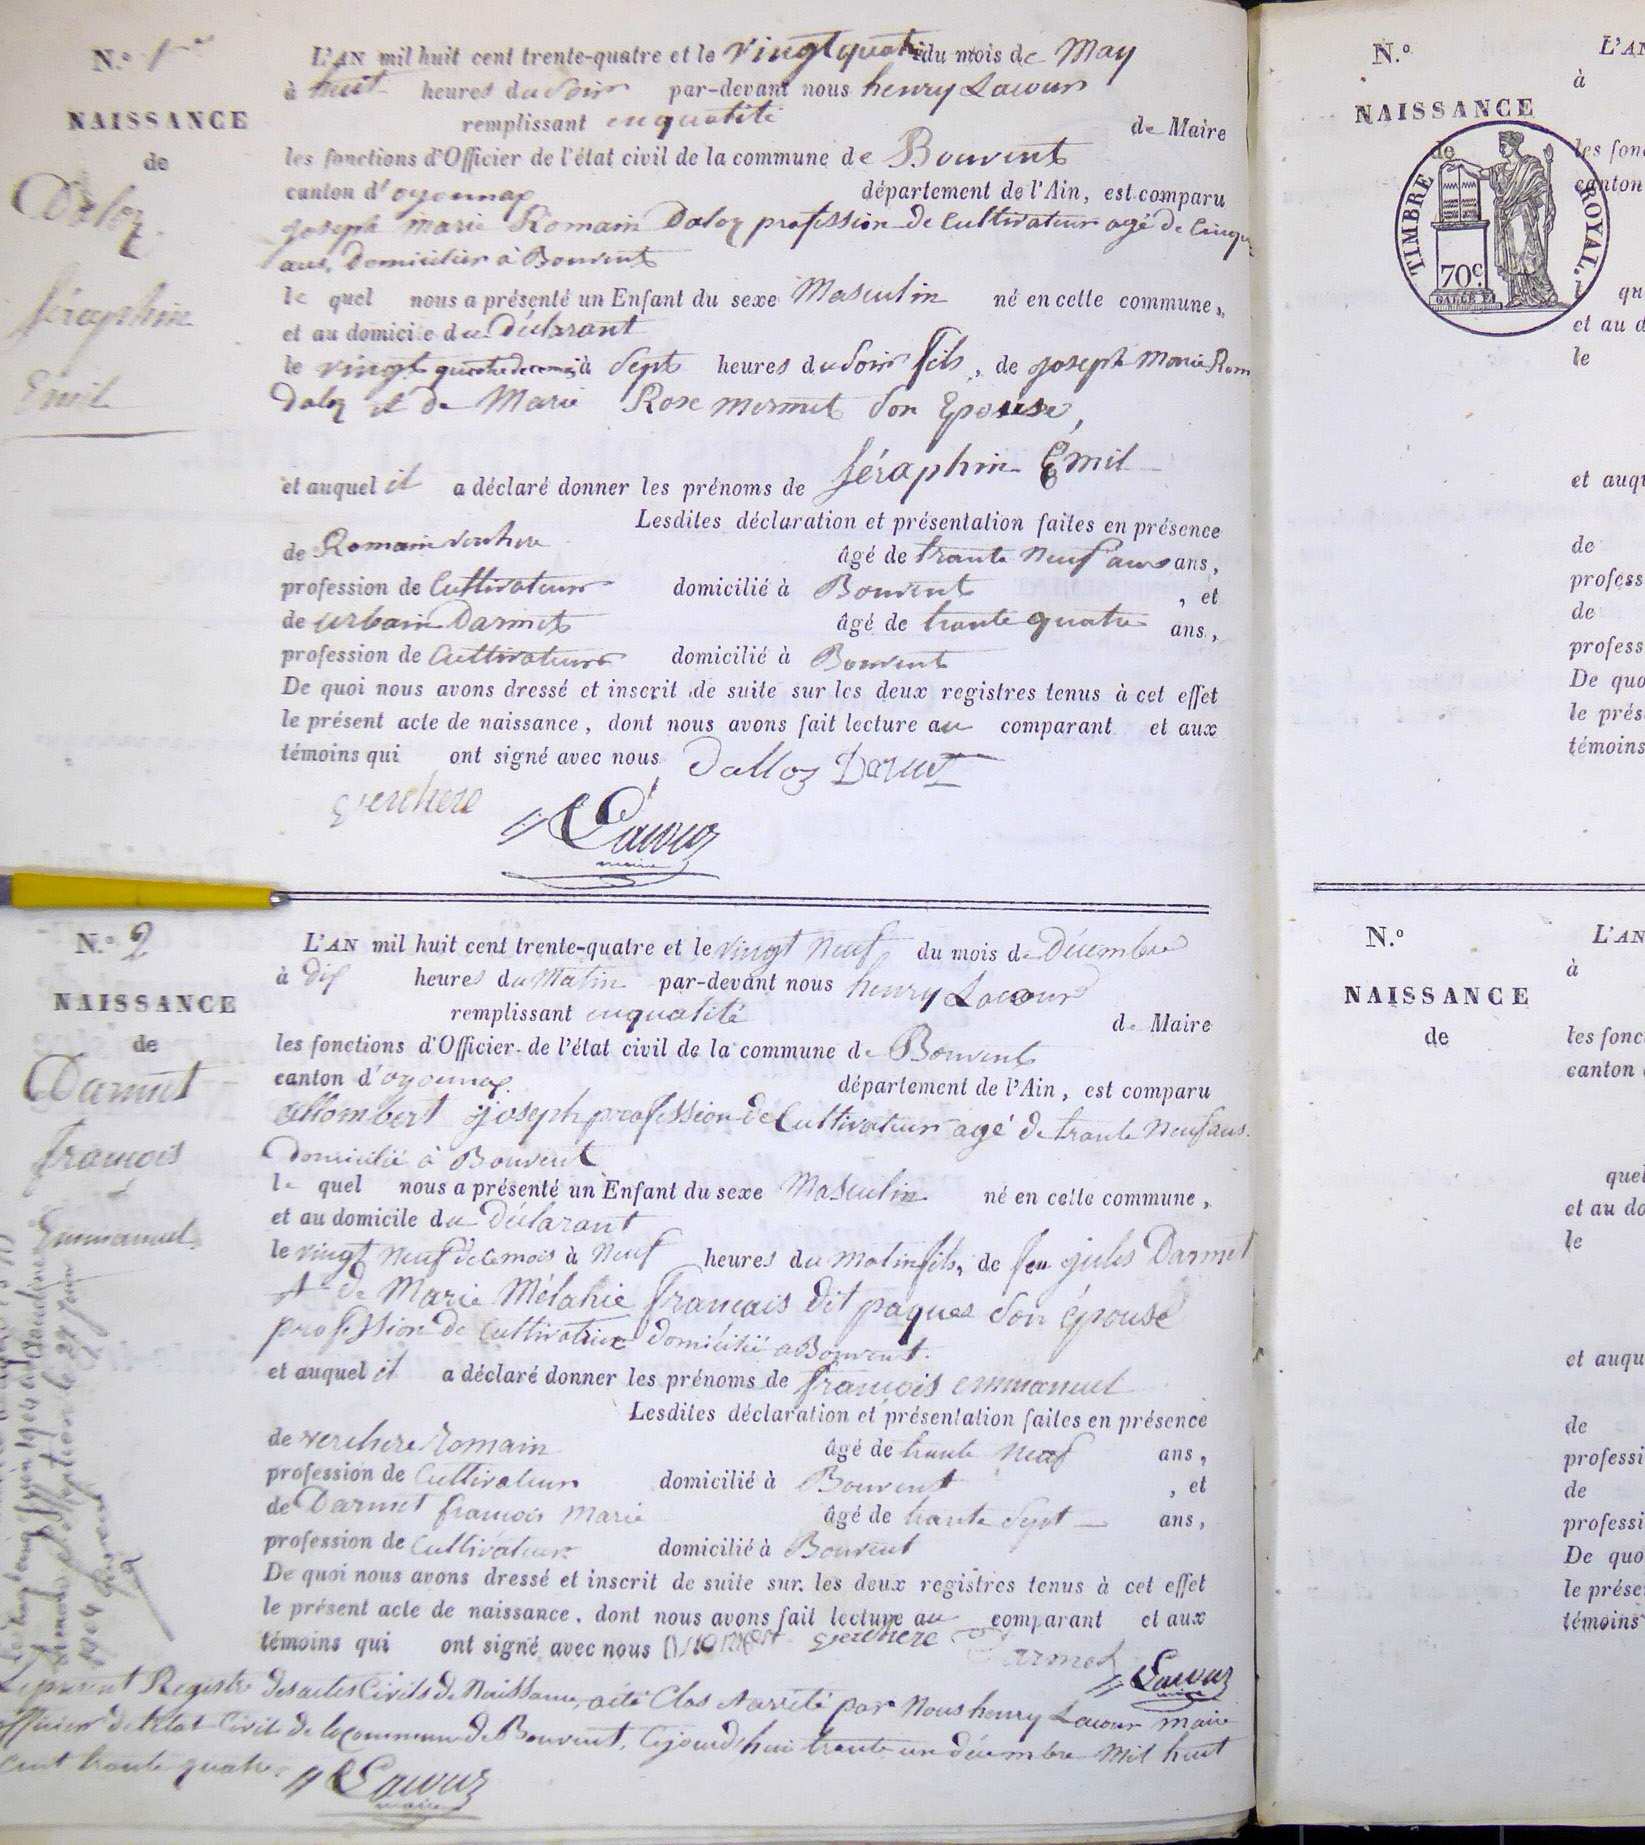 N.º 1er
NAISSANCE
de
Daloz
Séraphin
Emil
L'AN mil huit cent trente-quatre et le vingt quatre du mois de May
à huit heures du Soir par-devant nous henry Lacour
remplissant enqualité de Maire
les fonctions d'Officier de l'état civil de la commune de Bouvent
canton d'oyonnax département de l'Ain, est comparu
joseph marie Romain Daloz profession de Cultivateur agé de
ans, Domicilier à Bouvent
le quel nous a présenté un Enfant du sexe Masculin né en celle commune,
et au domicile du Déclarant
le vingt quatre à Sept heures du Soir fils, de joseph Marie Rom
Daloz et de Marie Rose mermet Son Epouse,
et auquel il a déclaré donner les prénoms de Séraphin Émil
Lesdites déclaration et présentation faites en présence
de Romain verchere âgé de trante neuf ans ans,
profession de Cultivateur domicilié à Bouvent, et
de urbain Darmet âgé de trante quatre ans,
profession de Cultivateur domicilié à Bouvent
De quoi nous avons dressé et inscrit de suite sur les deux registres tenus à cet effet
le présent acte de naissance, dont nous avons fait lecture au comparant et aux
témoins qui ont signé avec nous Dalloz Darmet
verchere
Lacour
maire
N.º 2
NAISSANCE
de
Darmet
françois
Emmanuel
L'AN mil huit cent trente-quatre et le vingt Neuf du mois de Décembre
à dix heures du Matin par-devant nous henry Lacour
remplissant enqualité de Maire
les fonctions d'Officier de l'état civil de la commune de Bouvent
canton d'oyonnax département de l'Ain, est comparu
allombert joseph profession de Cultivateur agé de trante Neuf ans.
Domicilié à Bouvent
le quel nous a présenté un Enfant du sexe Masculin né en celle commune,
et au domicile du Déclarant
le vingt Neuf de ce mois à Neuf heures du Matin fils, de feu jules Darmet
et de Marie Mélanie francais dit paques Son épouse
profession de Cultivatrice domicilié a Bouvent.
et auquel il a déclaré donner les prénoms de françois emmanuel
Lesdites déclaration et présentation faites en présence
de verchere romain âgé de trante Neuf ans,
profession de Cultivateur domicilié à Bouvent, et
de Darmet françois Marie âgé de trante Sept ans,
profession de Cultivateur domicilié à Bouvent
De quoi nous avons dressé et inscrit de suite sur les deux registres tenus à cet effet
le présent acte de naissance, dont nous avons fait lecture au comparant et aux
témoins qui ont signé avec nous verchere Darmet
Lacour
maire
Le present Registre des actes Civils de Naissance, a été Clos & arrêté par Nous henry Lacour maire
officier de l'Etat Civil de la commune de Bouvent, Cejourd'hui trante un décembre Mil huit
Cent trante quatre.
Lacour
maire
N.º
NAISSANCE
de
TIMBRE ROYAL.
70c.
L'AN
à
les fonc
canton
qu
et au d
le
et auqu
de
profess
de
profess
De quo
le prés
témoins
N.º
NAISSANCE
de
L'AN
à
les fonc
canton
quel
et au do
le
et auqu
de
professi
de
professi
De quo
le prése
témoins